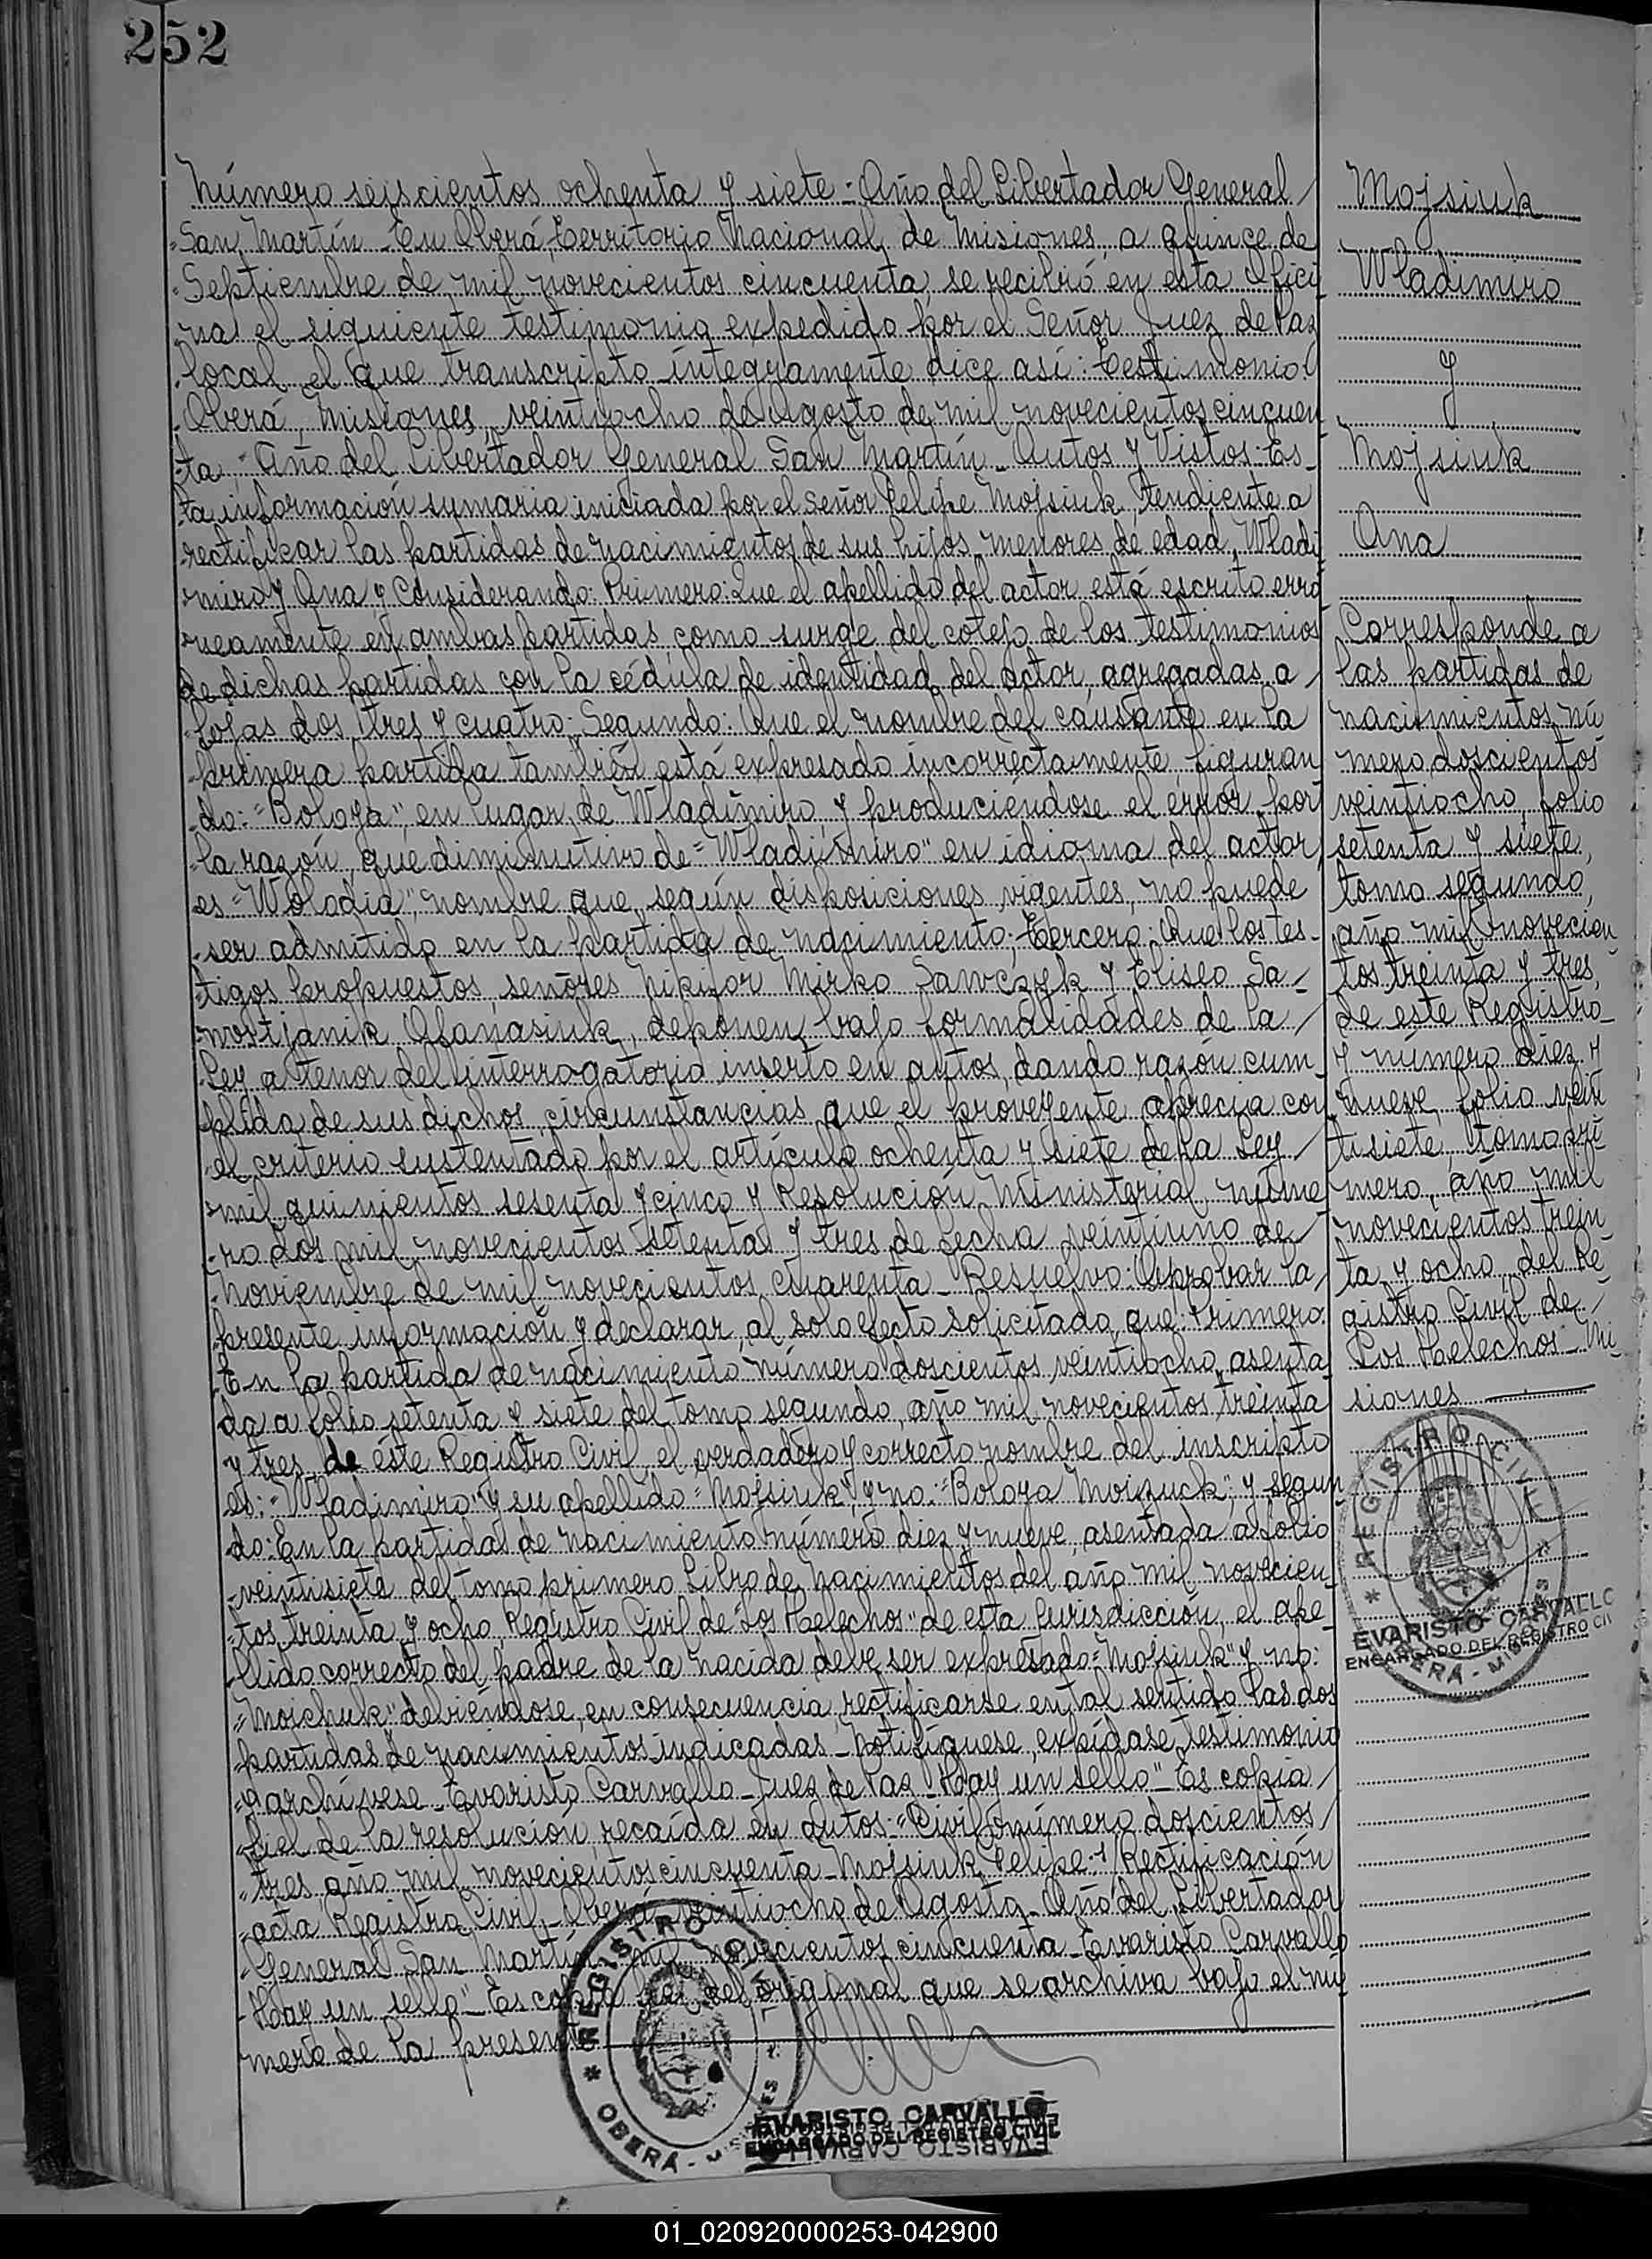 252
Número seiscientos ochenta y siete - Año del Libertador General
San Martín - En Oberá, Territorio Nacional de Misiones, a quince de
Septiembre de mil novecientos cincuenta, se recibió en esta Ofici
na el siguiente testimonio expedido por el Señor Juez de Paz
local, el que transcripto íntegramente dice así: Testimonio
Oberá, Misiones, veintiocho de Agosto de mil novecientos cincuen
ta, Año del Libertador General San Martín - Autos y Vistos: Es-
ta información sumaria iniciada por el señor Felipe Mojsiuk, tendiente a
rectificar las partidas de nacimientos de sus hijos menores de edad, Wladi
miro y Ana y Considerando: Primero: Que el apellido del actor está escrito erró
neamente en ambas partidas, como surge del cotejo de los testimonios
de dichas partidas con la cédula de identidad del actor, agregadas a
fojas dos, tres y cuatro; Segundo: Que el nombre del causante en la
primera partida también está expresado incorrectamente, figuran
do: "Boloya", en lugar de Wladimiro, y produciéndose el error, por
la razón, que diminutivo de "Wladimiro" en idioma del actor,
es "Wolodia", nombre que, según disposiciones vigentes, no puede
ser admitido en la partida de nacimiento; Tercero: Que los tes-
tigos propuestos, señores Nikifor Mirko Sawczyk y Eliseo Sa-
mostjanik Afanasiuk, deponen bajo formalidades de la
Ley a tenor del interrogatorio inserto en autos, dando razón cum-
plida de sus dichos, circunstancias que el proveyente aprecia con
el criterio sustentado por el artículo ochenta y siete de la Ley
mil quinientos sesenta y cinco y Resolución Ministerial núme
ro dos mil novecientos setenta y tres de fecha veintiuno de
Noviembre de mil novecientos cuarenta - Resuelvo: Aprobar la
presente información y declarar, al solo efecto solicitado, que: Primero
En la partida de nacimiento número doscientos veintiocho, asenta
da a folio setenta y siete del tomo segundo, año mil novecientos treinta
y tres, de éste Registro Civil, el verdadero y correcto nombre del inscripto
es: "Wladimiro" y su apellido "Mojsiuk", y no: "Boloya Moizuck"; y segun
do: En la partida de nacimiento número diez y nueve, asentada a folio
veintisiete del tomo primero Libro de Nacimientos del año mil novecien-
tos treinta y ocho, Registro Civil de "Los Helechos" de esta Jurisdicción, el ape
llido correcto del padre de la nacida debe ser expresado "Mojsiuk" y no:
"Moichuk", debiéndose, en consecuencia, rectificarse en tal sentido las dos
partidas de nacimientos indicadas - Notifíquese, expídase testimonio
y archívese - Evaristo Carvallo - Juez de Paz - Hay un sello" - Es copia
fiel de la resolución recaída en autos: "Civil número doscientos
tres, año mil novecientos cincuenta - Mojsiuk Felipe - s/Rectificación
acta Registro Civil - Oberá, veintiocho de Agosto - Año del Libertador
General San Martín - mil novecientos cincuenta - Evaristo Carvallo
Hay un sello" - Es copia fiel del original que se archiva bajo el nú
mero de la presente
Mojsiuk
Wladimiro
y
Mojsiuk
Ana
Corresponde a
las partidas de
nacimientos nú
mero doscientos
veintiocho, folio
setenta y siete,
tomo segundo,
año mil novecien
tos treinta y tres,
de este Registro
y número diez y
nueve, folio vein
tisiete, tomo pri
mero, año mil
novecientos trein
ta y ocho, del Re-
gistro Civil de
Los Helechos - Mi
siones
REGISTRO CIVIL
OBERÁ - MISIONES
EVARISTO CARVALLO
ENCARGADO DEL REGISTRO CIVIL
REGISTRO CIVIL
OBERÁ - MISIONES
EVARISTO CARVALLO
ENCARGADO DEL REGISTRO CIVIL
01_020920000253-042900